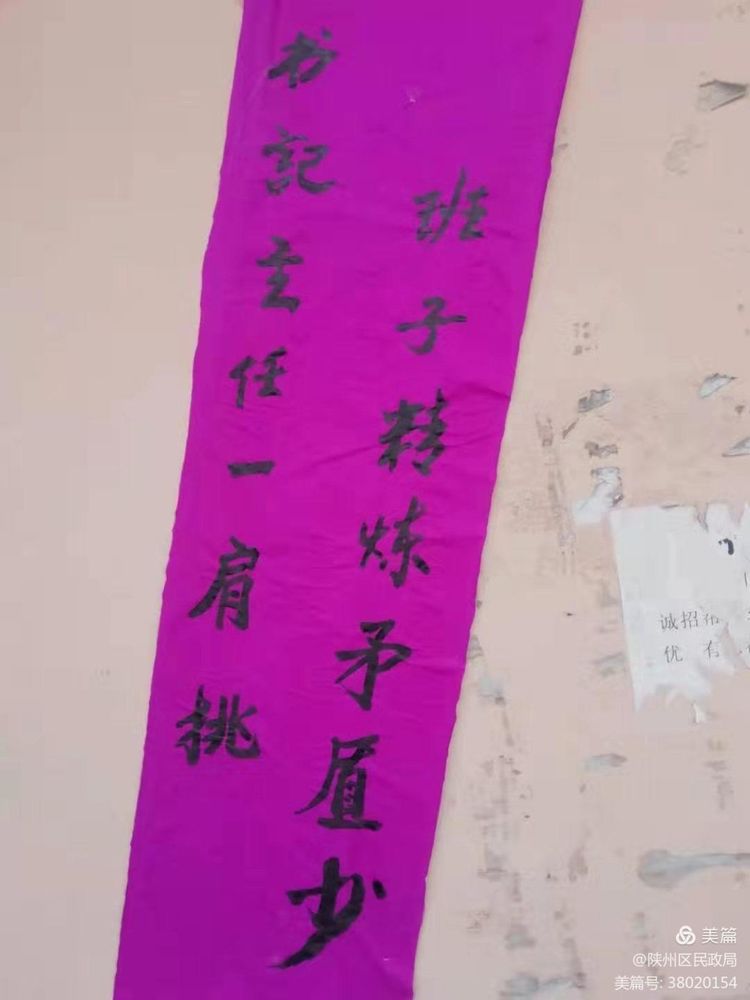 书記主任一肩挑
班子精炼矛盾少
诚招
优 有
美篇
@陕州区民政局
美篇号: 38020154